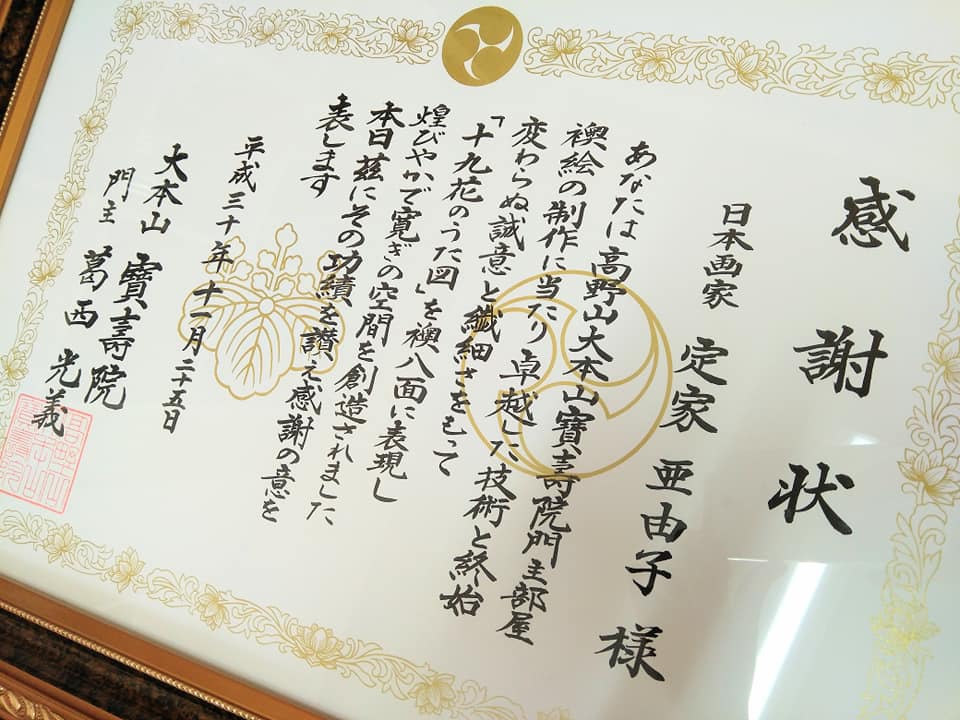 感謝状
日本画家 定家 亜由子 様
あなたは高野山大本山寶壽院門主部屋
襖絵の制作に当たり卓越した技術と終始
変わらぬ誠意と繊細さをもって
「十九花のうた図」を襖八面に表現し
煌びやかで寛ぎの空間を創造されました
本日茲にその功績を讃え感謝の意を
表します
平成三十年十一月二十五日
大本山 寶壽院
門主 葛西 光義